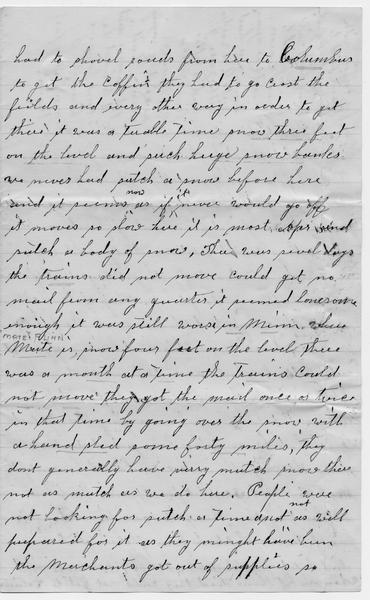 had to shovel roads from here to Columbus
to get the coffin they had to go crost the
fields and every other way in order to get
there it was a tuable time snow three feet
on the level and such huge snow banks
we never had sutch a snow before here
and it seems now as if it never would go off
it moves so slow here it is most apr and
sutch a body of snow, Thee was sevel days
the trains did not move could get no
mail from any quarter it seemed lonesome
enough it was still worse in Minn where
Mate is, snow four feet on the level there
was a month at a time the trains could
not move they got the mail once or twice
in that time by going over the snow with
a hand sled some forty miles, they
dont generally have verry mutch snow there
not as mutch as we do here. People were
not looking for sutch a time and not as well
prepared for it as they minght have been
the Merchants got out of supplies so